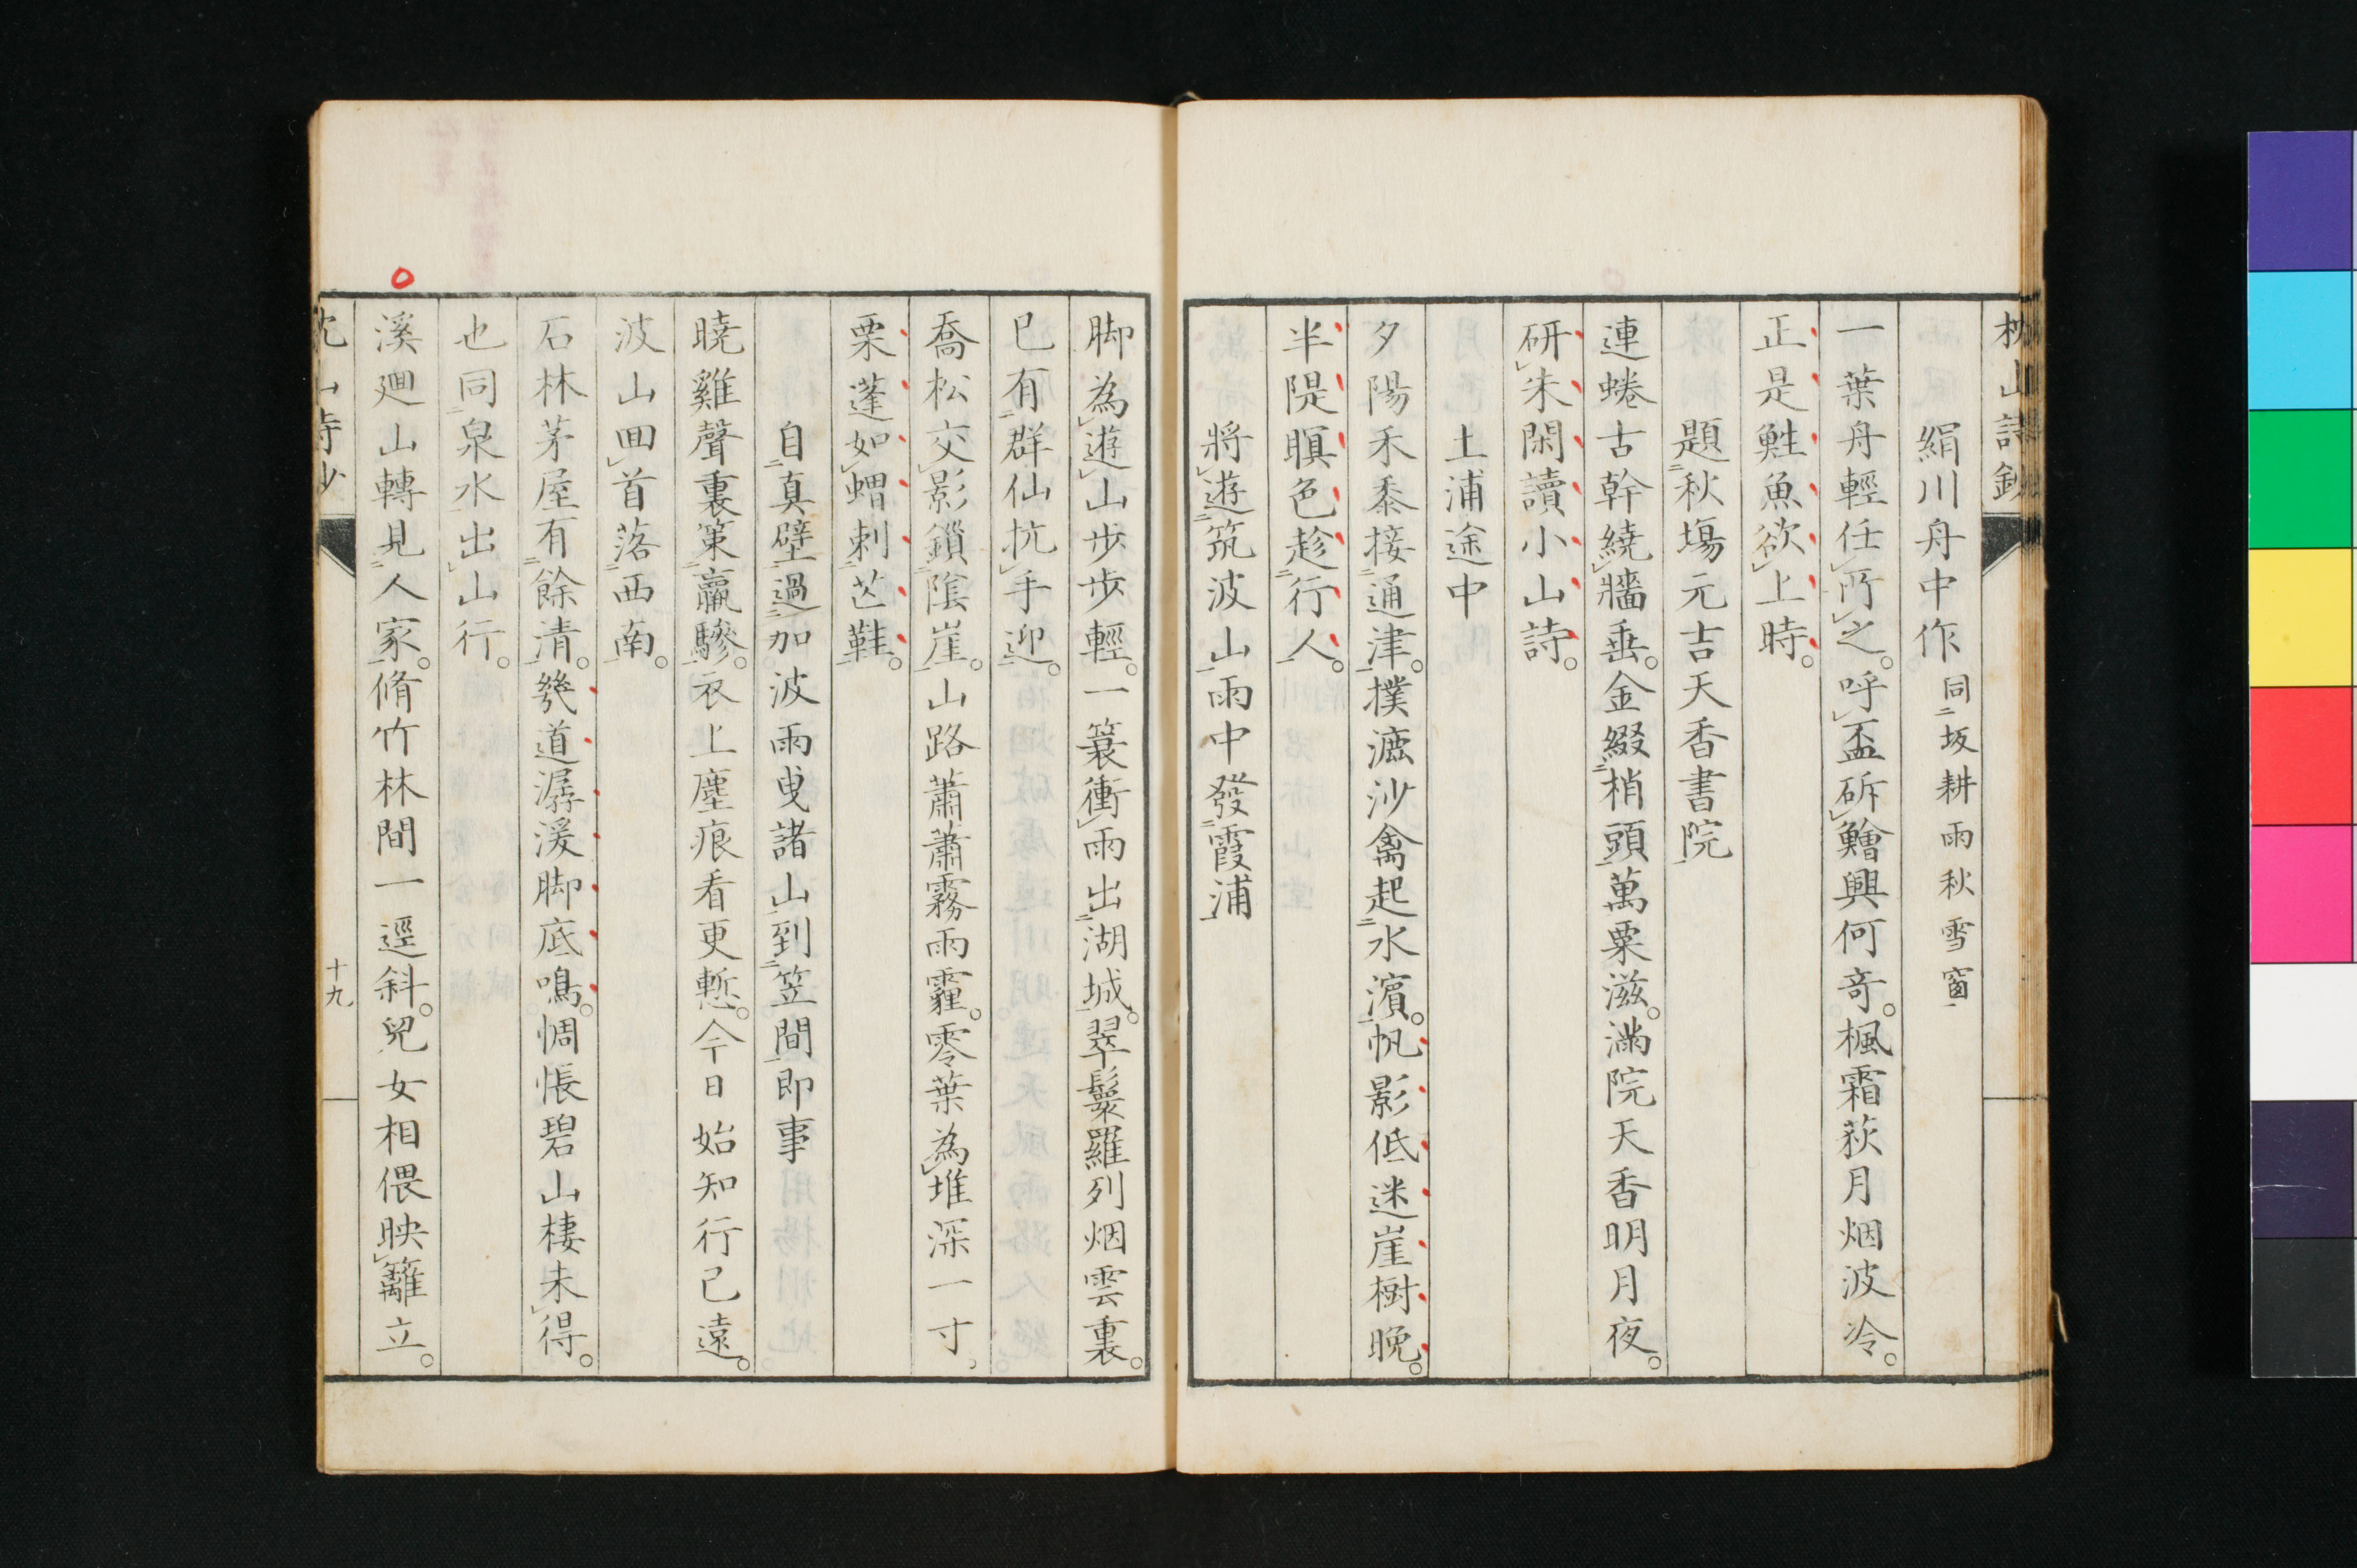 枕山詩鈔
絹川舟中作 同坂耕雨秋雪窗
一葉舟輕任所之。呼盃斫鱠興何奇。楓霜荻月烟波冷。
正是鮏魚欲上時。
題秋塲元吉天香書院
連蜷古幹繞牆垂。金綴梢頭萬粟滋。滿院天香明月夜。
研朱閑讀小山詩。
土浦途中
夕陽禾黍接通津。撲漉沙禽起水濵。帆影低迷崖樹晚。
半隄暝色趁行人。
將遊筑波山雨中發霞浦
脚為遊山步步輕。一簑衝雨出湖城。翠鬟羅列烟雲裏。
已有群仙抗手迎。
喬松交影鎖陰崖。山路蕭蕭霧雨霾。零葉為堆深一寸。
栗蓬如蝟刺芒鞋。
自真壁過加波雨曵諸山到笠間即事
曉雞聲裏策羸驂。衣上塵痕看更慙。今日始知行已遠。
波山回首落西南。
石林茅屋有餘清。幾道潺湲脚底鳴。惆悵碧山棲未得。
也同泉水出山行。
溪廻山轉見人家。脩竹林間一逕斜。兒女相偎映籬立。
枕山詩鈔
十九